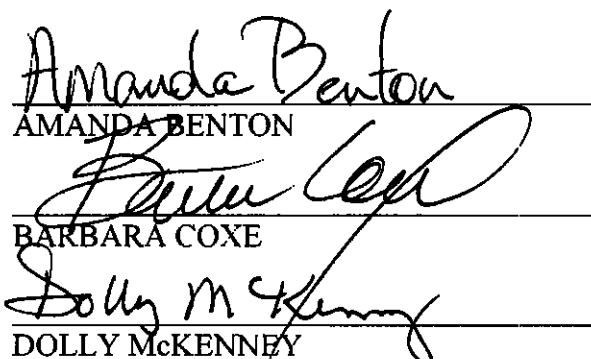 Amanda Benton
AMANDA BENTON
BARBARA COXE
Dolly McKenney
DOLLY McKENNEY